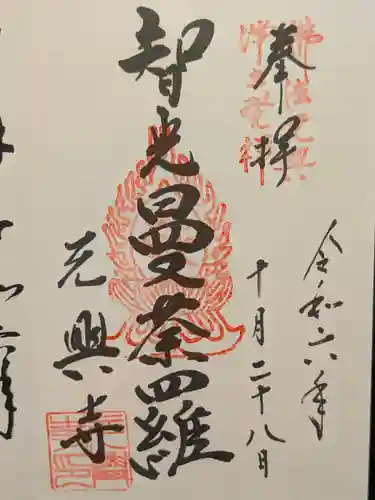 奉拝
令和六年
十月二十八日
智光曼荼羅
元興寺